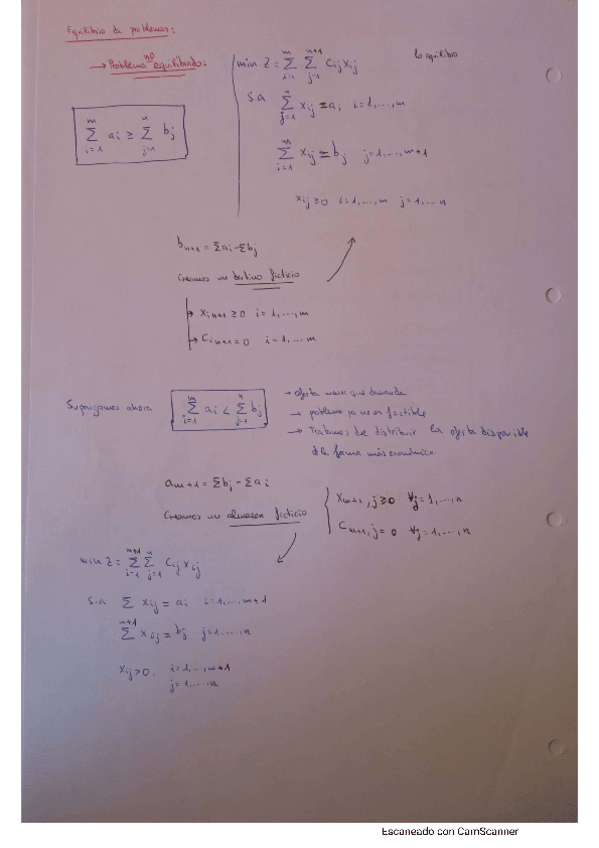 Equilibrio de problemas:
→ Problema no equilibrado:
min Z = Σ_{i=1}^{m} Σ_{j=1}^{n+1} Cij xij
lo equilibro
s.a Σ_{j=1}^{n} xij ≤ ai i=1,...,m
Σ_{i=1}^{m} ai ≥ Σ_{j=1}^{n} bj
Σ_{i=1}^{m} xij = bj j=1,...,n+1
xij ≥ 0 i=1,...,m j=1,...n
b_{n+1} = Σai - Σbj
Creamos un destino ficticio
→ x_{i n+1} ≥ 0 i=1,...,m
→ C_{i n+1} = 0 i=1,...m
Supongamos ahora Σ_{i=1}^{m} ai < Σ_{j=1}^{n} bj
→ oferta menor que demanda
→ problema ya no es factible
→ Tratamos de distribuir la oferta disponible
de la forma más económica.
a_{m+1} = Σbj - Σai
Creamos un almacen ficticio
x_{m+1,j} ≥ 0 ∀j=1,...,n
C_{m+1,j} = 0 ∀j=1,...,n
min Z = Σ_{i=1}^{m+1} Σ_{j=1}^{n} Cij xij
s.a Σ xij = ai i=1,...,m+1
Σ^{m+1} xij = bj j=1,...,n
xij > 0, i=1,...,m+1
j=1,...,n
Escaneado con CamScanner